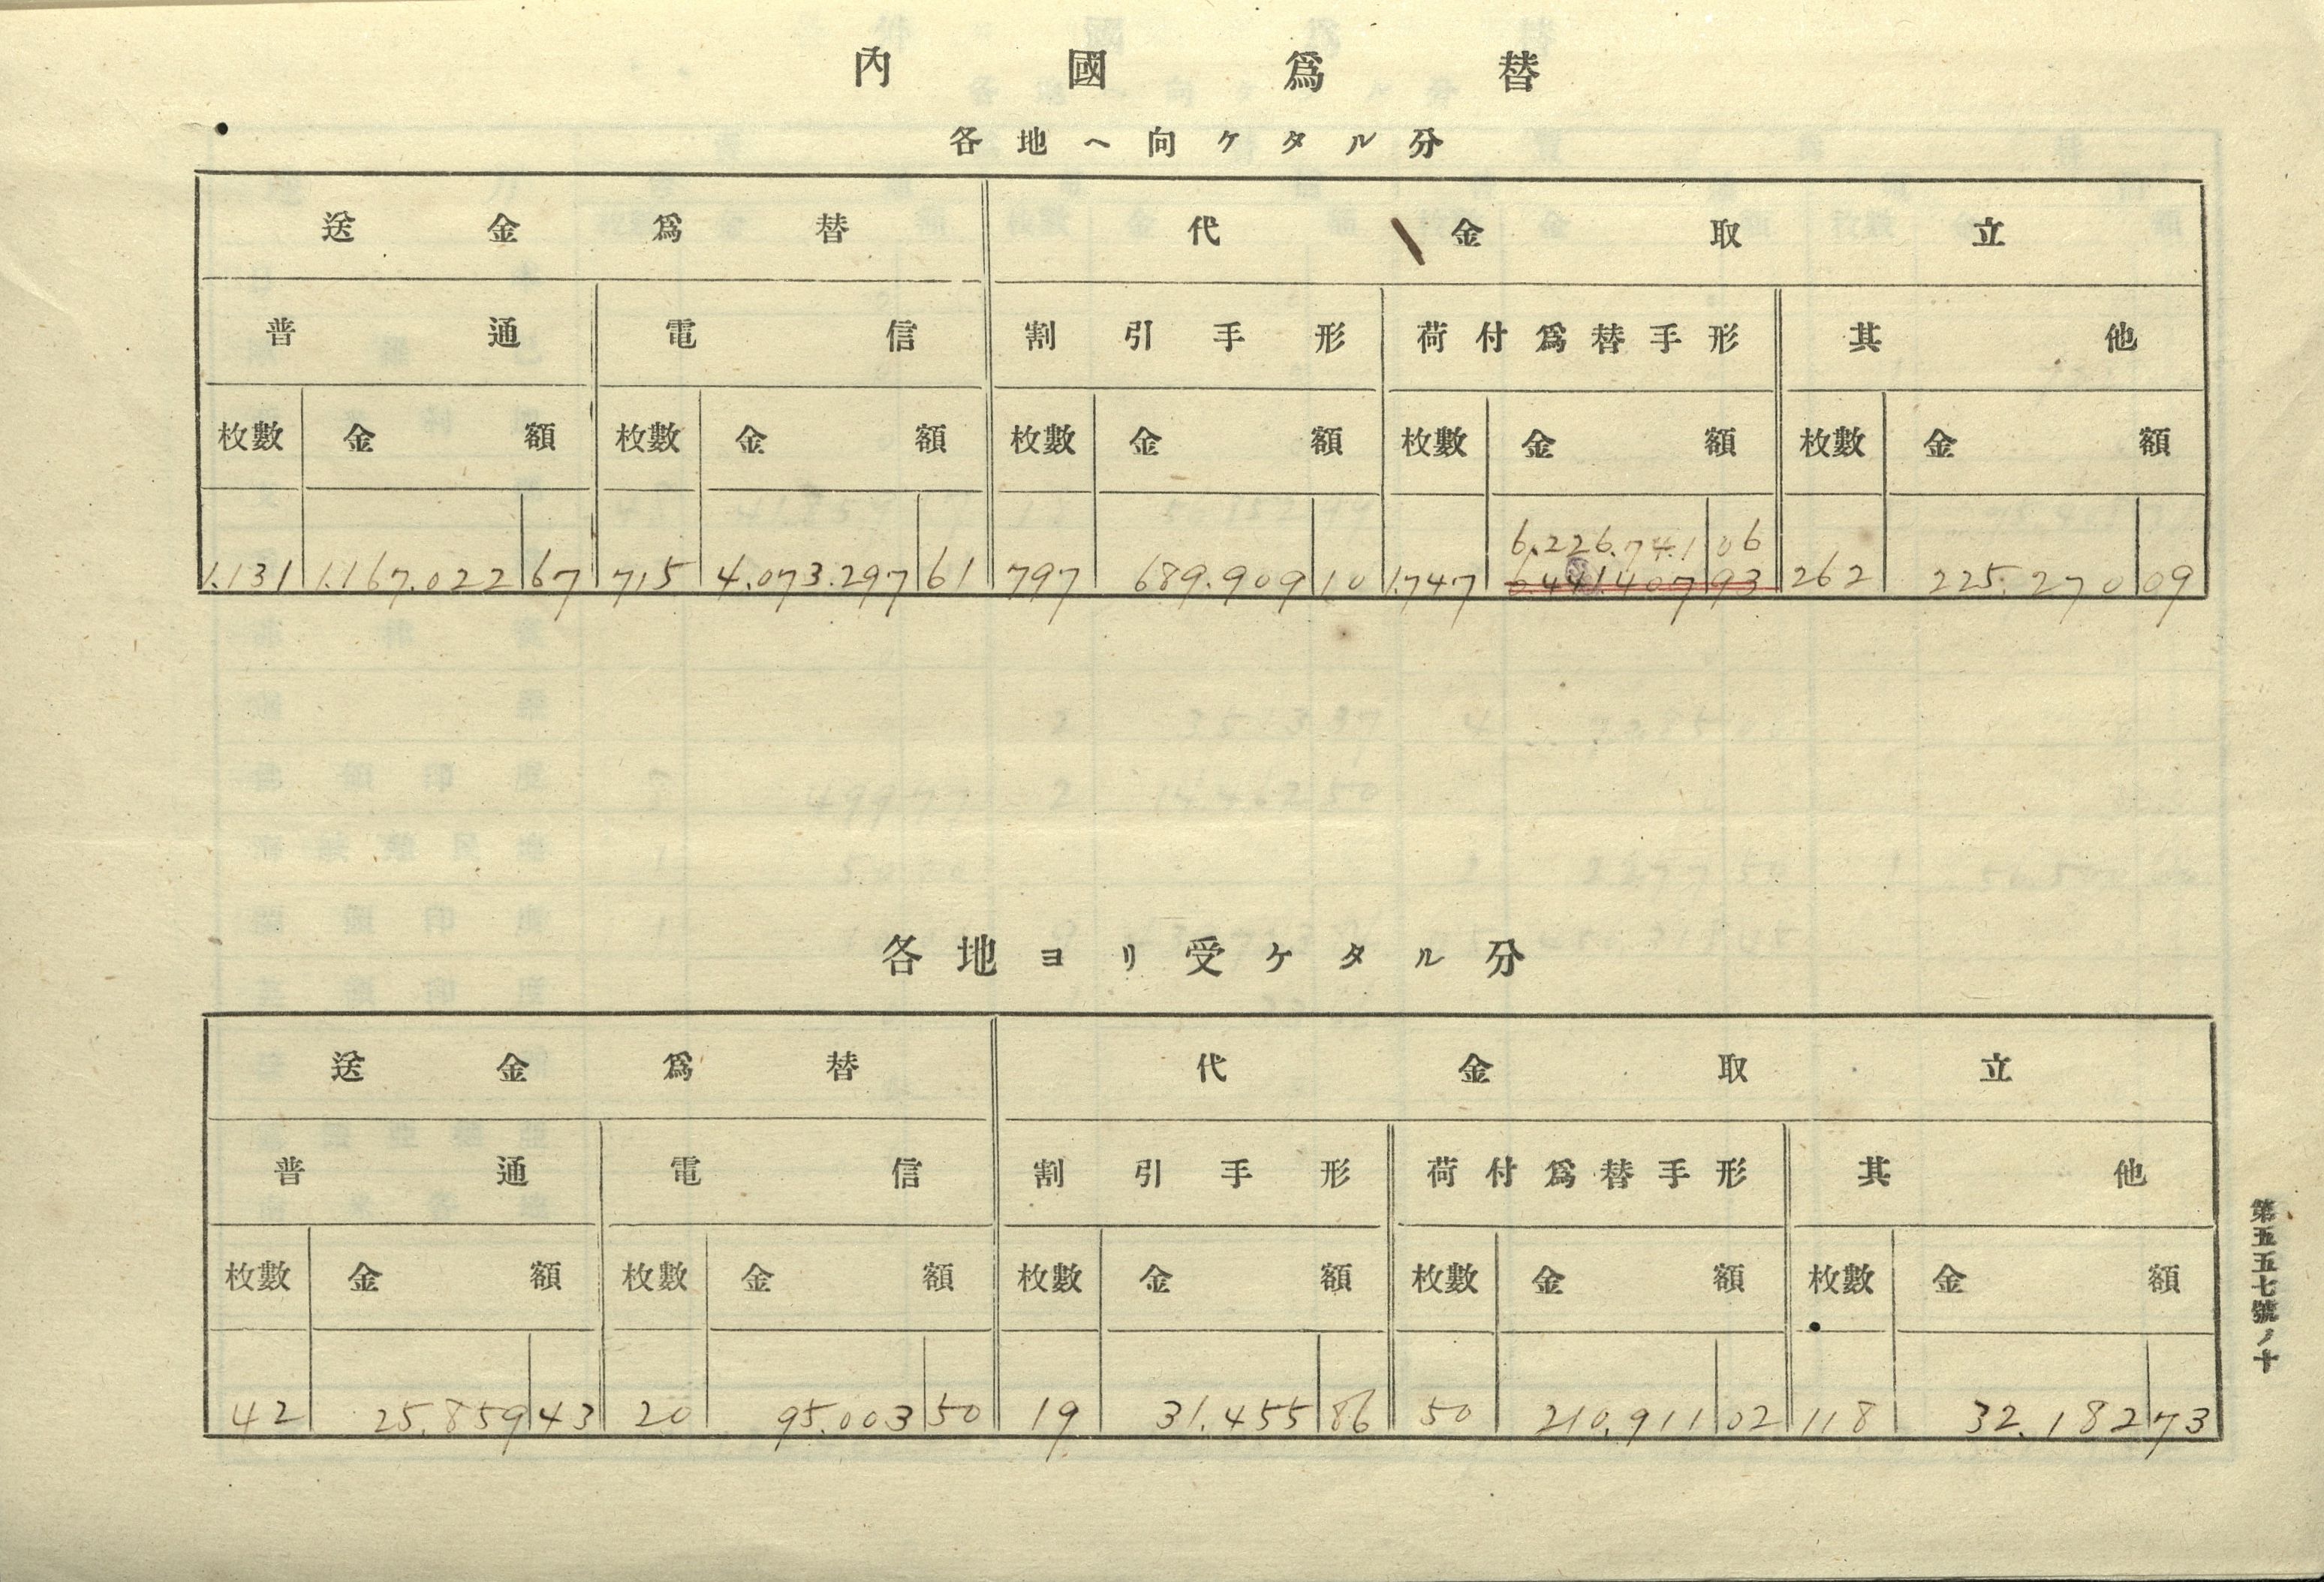 內國爲替
各地ヘ向ケタル分
送金爲替 代金取立
普通 電信 割引手形 荷付爲替手形 其他
枚數 金額 枚數 金額 枚數 金額 枚數 金額 枚數 金額
6.226.741 06
1.131 1.167.022 67 715 4.073.297 61 797 689.909 10 1.747 6.441.407 93 262 225.270 09
各地ヨリ受ケタル分
送金爲替 代金取立
普通 電信 割引手形 荷付爲替手形 其他
枚數 金額 枚數 金額 枚數 金額 枚數 金額 枚數 金額
42 25.859 43 20 95.003 50 19 31.455 86 50 210.911 02 118 32.182 73
第五五七號ノ十